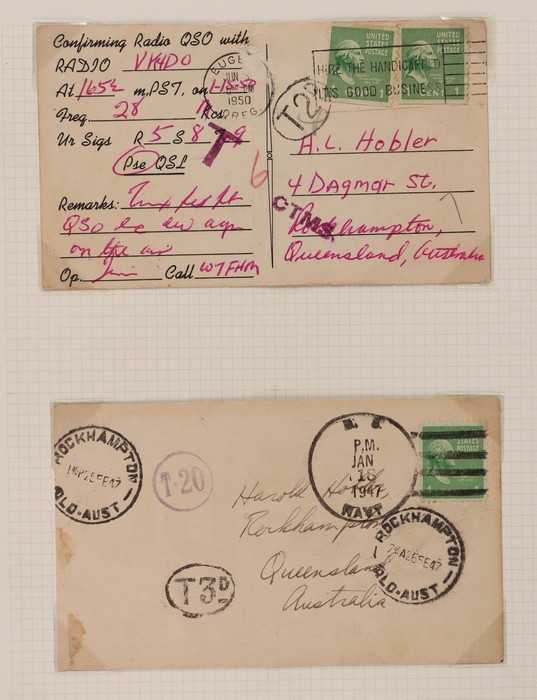 Confirming Radio QSO with
RADIO VK4DO
At 1652 m.PST, on 1-15-50
Freq. 28 Kcs.
Ur Sigs R 5 S 8 T 9
Pse QSL
Remarks: Tnx fer ft
QSO es cu agn
on the air
Op. Jim Call W7FHM
EUGENE
JUN
1950
OREG.
UNITED STATES POSTAGE
UNITED STATES POSTAGE 1
HIRE THE HANDICAPPED
IT'S GOOD BUSINESS
T
T2D
6
7
CTMS.
H.L. Hobler
4 Dagmar St,
Rockhampton,
Queensland, Australia
ROCKHAMPTON
25FE47
QLD-AUST
T·20
T3D
U. S.
P.M.
JAN
18
1947
NAVY
STATES
POSTAGE
Harold
Rockhampton
Queensland
Australia
ROCKHAMPTON
26FE47
QLD-AUST